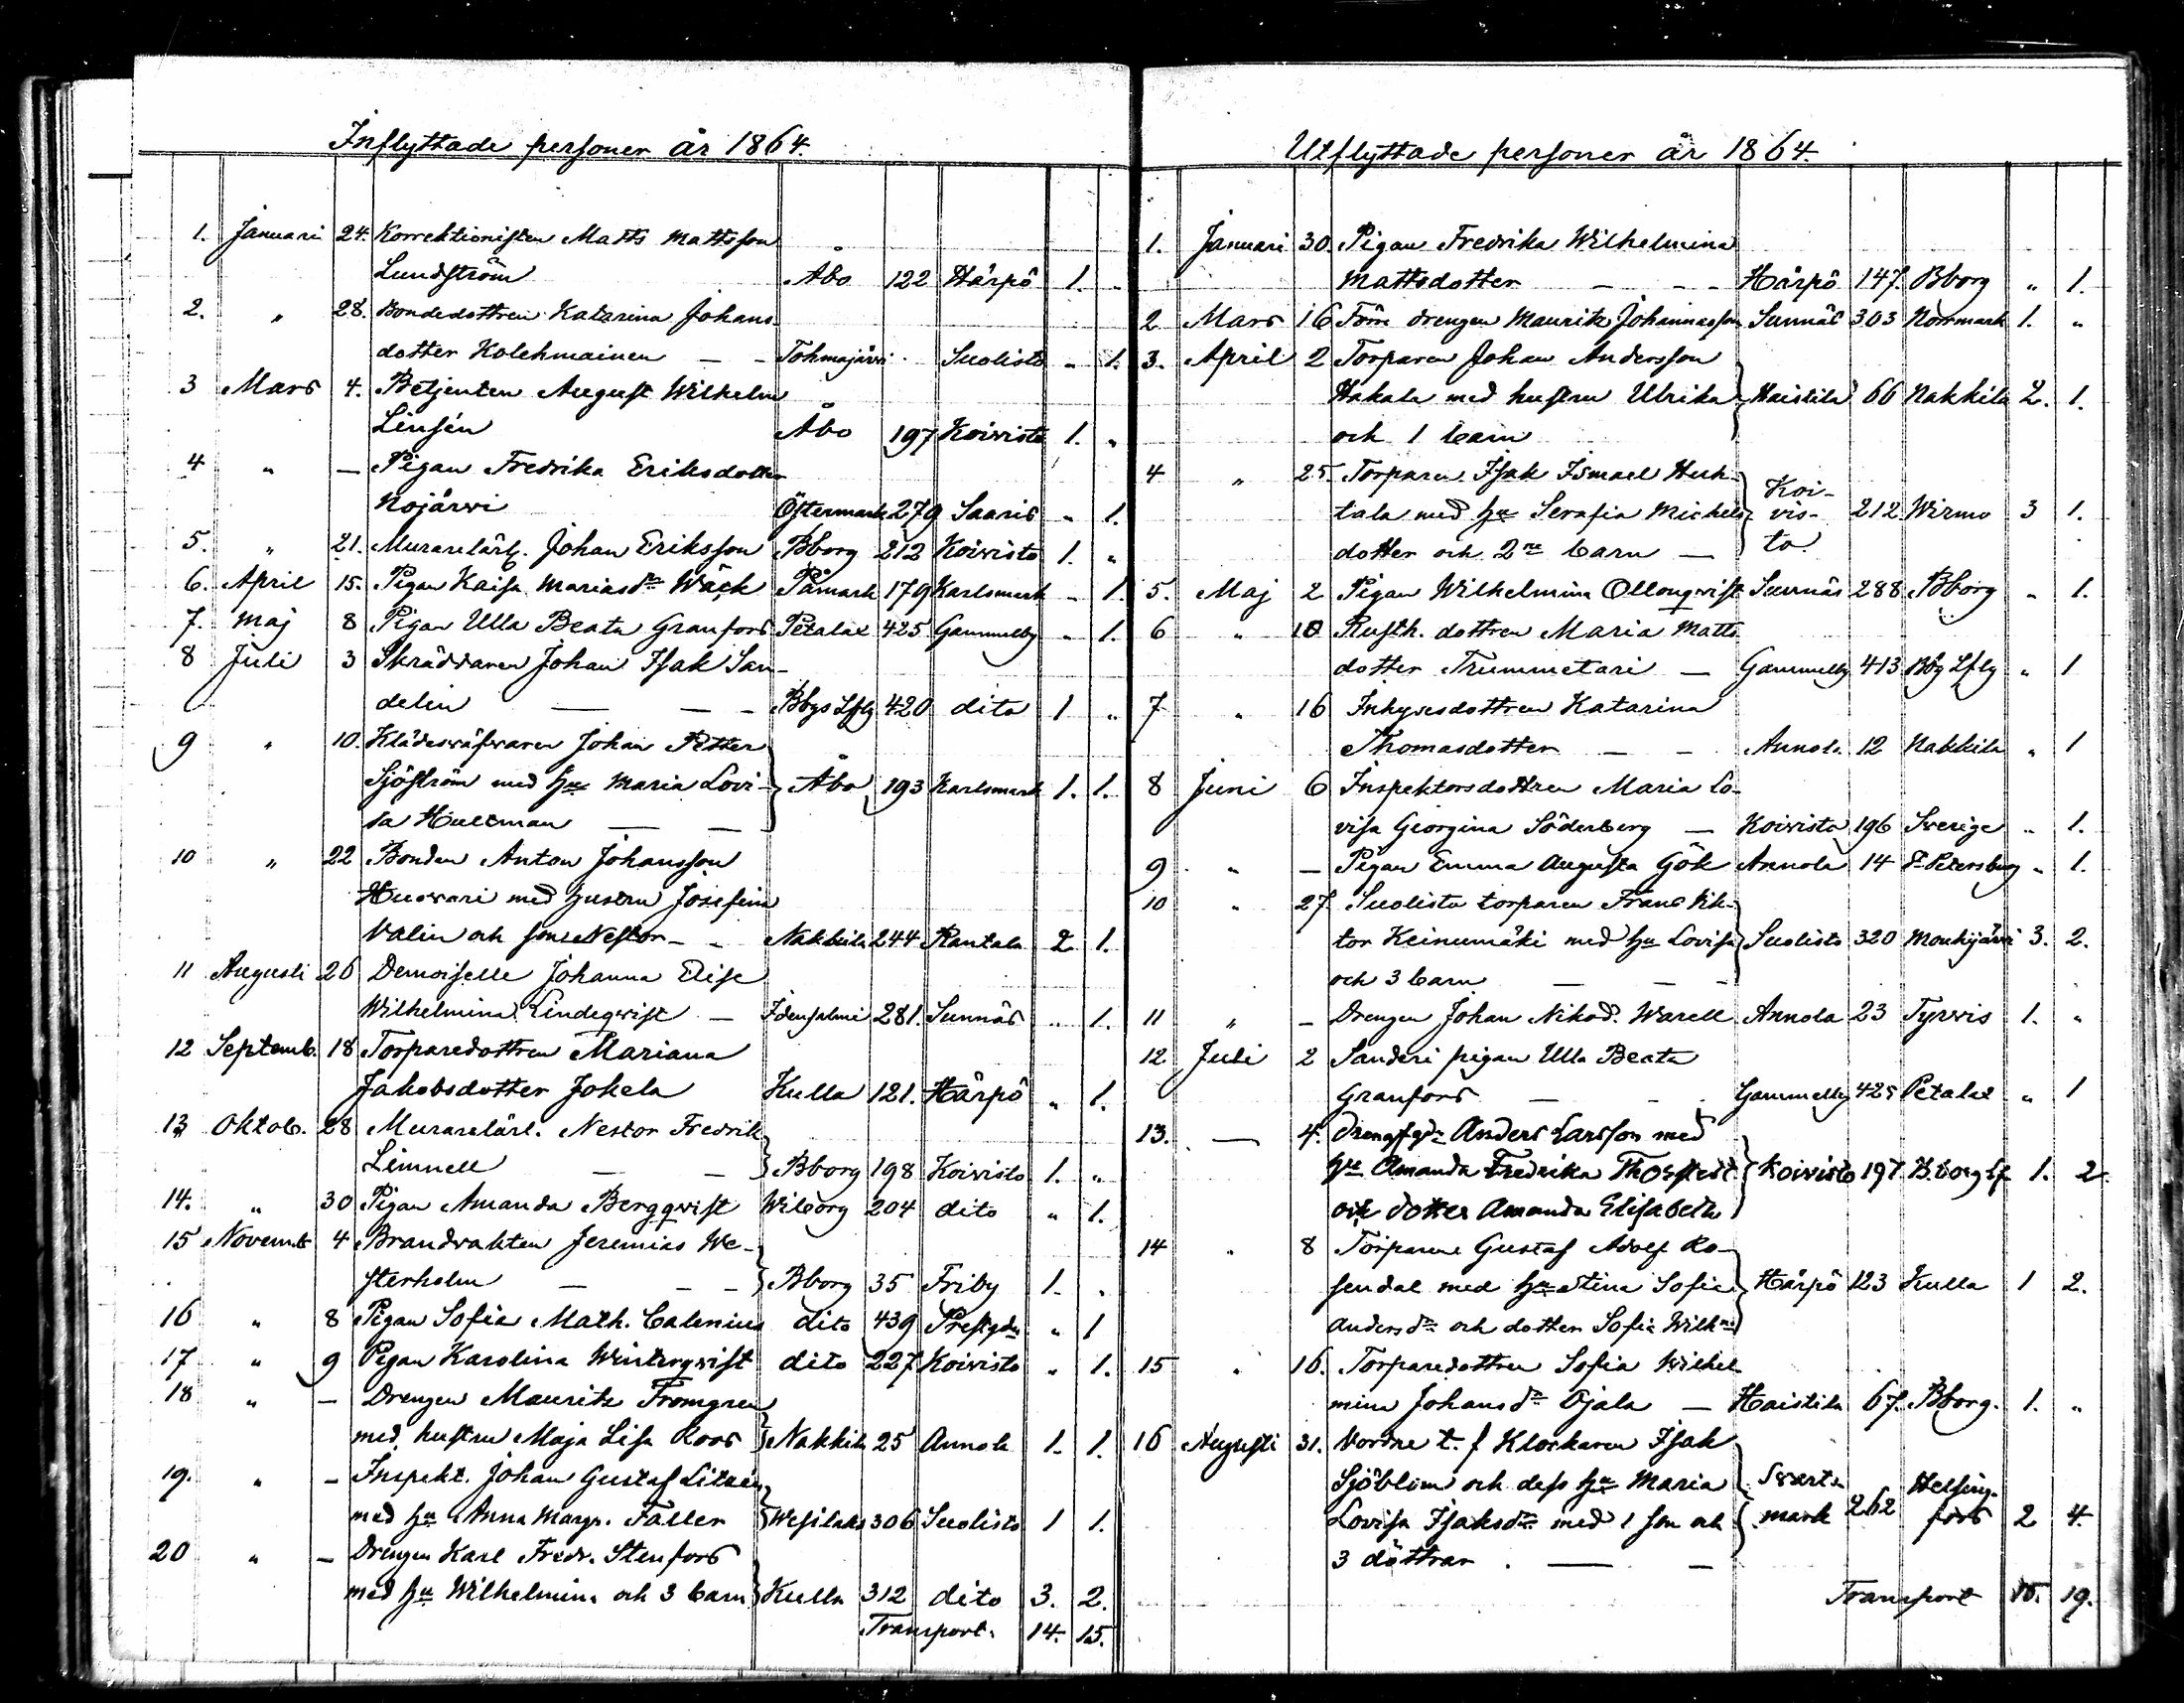 Inflyttade personer år 1864.
1. Januari 24. Korrektionisten Matts Mattsson
Lundström Åbo 122 Hårpö 1. „
2. „ 28. Bondedottren Katarina Johans-
dotter Kolehmainen — Tohmajärvi Suolisto „ 1.
3 Mars 4. Betjenten August Wilhelm
Linsén Åbo 197 Koivisto 1. „
4 „ — Pigan Fredrika Eriksdotter
Nojärvi Östermark 279 Saaris „ 1.
5. „ 21. Murarelärl. Johan Eriksson Bborg 212 Koivisto 1. „
6. April 15. Pigan Kaisa Mariasdr Wäck Påmark 179 Karlsmark „ 1.
7. Maj 8 Pigan Ulla Beata Granfors Petalax 425 Gammelby „ 1.
8 Juli 3 Skräddaren Johan Isak San-
delin — — Bbgs Lfg 420 dito 1 „
9 „ 10. Klädesväfvaren Johan Petter
Sjöström med hu Maria Lovi- Åbo 193 Karlsmark 1. 1.
sa Hultman — —
10 „ 22 Bonden Anton Johansson
Husvari med hustru Josefina
Valin och son Nestor — Nakkila 244 Rantala 2 1.
11 Augusti 26 Demoiselle Johanna Elise
Wilhelmina Lindeqvist — Idensalmi 281. Sunnäs „ 1.
12 Septemb. 18 Torparedottren Mariana
Jakobsdotter Jokela Kulla 121. Hårpö „ 1.
13 Oktob. 28 Murarelärl. Nestor Fredrik
Limnell — — Bborg 198 Koivisto 1. „
14. „ 30 Pigan Amanda Bergqvist Wiborg 204 dito „ 1.
15 Novemb 4 Brandvakten Jeremias We-
sterholm — — Bborg 35 Friby 1. „
16 „ 8 Pigan Sofia Math. Calenius dito 439 Prestgdn „ 1
17 „ 9 Pigan Karolina Winterqvist dito 227 Koivisto „ 1.
18 „ — Drengen Mauritz Fromgren
med hustru Maja Lisa Roos Nakkila 25 Annola 1. 1.
19. „ — Inspekt. Johan Gustaf Litzén
med hu Anna Margr. Faller Wesilaks 306 Suolisto 1 1.
20 „ — Drengen Karl Fredr. Stenfors
med hu Wilhelmina och 3 barn Kulla 312 dito 3. 2.
Transport. 14. 15.
Utflyttade personer år 1864.
1. Januari 30. Pigan Fredrika Wilhelmina
Mattsdotter — — Hårpö 147. Bborg „ 1.
2 Mars 16 Förre drengen Mauritz Johannesson Sunnäs 303 Norrmark 1. „
3. April 2 Torparen Johan Andersson
Hakala med hustru Ulrika Haistila 66 Nakkila 2. 1.
och 1 barn
4 „ 25 Torparen Isak Ismael Huh- Koi-
tala med hu Serafia Michels- vis- 212. Wirmo 3 1.
dotter och 2ne barn — to
5. Maj 2 Pigan Wilhelmina Ollonqvist Sunnäs 288 Bborg „ 1.
6 „ 10 Rusth. dottren Maria Matts
dotter Trummetari — Gammelby 413 Bbg Lfg „ 1
7 „ 16 Inhysesdottren Katarina
Thomasdotter — — Annola 12 Nakkila „ 1
8 Juni 6 Inspektorsdottren Maria Lo-
visa Georgina Söderberg — Koivisto 196 Sverige „ 1.
9 „ — Pigan Emma Augusta Gök Annola 14 St Petersburg „ 1.
10 „ 27. Suolisto torparen Frans Vik-
tor Keinumäki med hu Lovisa Suolisto 320 Mouhijärvi 3. 2.
och 3 barn — —
11 „ — Drengen Johan Nikod. Warell Annola 23 Tyrvis 1. „
12 Juli 2 Sanderi pigan Ulla Beata
Granfors — — Gammelby 425 Petalax „ 1
13. — 4. Anders Larsson med
hu Amanda Fredrika Thorstedt Koivisto 197 B.borg Lf 1. 2.
och dotter Amanda Elisabeth
14 „ 8 Torparen Gustaf Adolf Ro-
sendal med hu Stina Sofia Hårpö 123 Kulla 1 2.
Andersdr och dotter Sofia Wilhna
15 „ 16. Torparedottren Sofia Wilhel-
mina Johansdr Ojala — Haistila 67. Bborg. 1. „
16 Augusti 31. Vordne t. f Klockaren Isak
Sjöblom och dess hu Maria Svart- Helsing-
Lovisa Isaksdr med 1 son och mark 262 fors 2 4.
3 döttrar — —
Transport 15. 19.